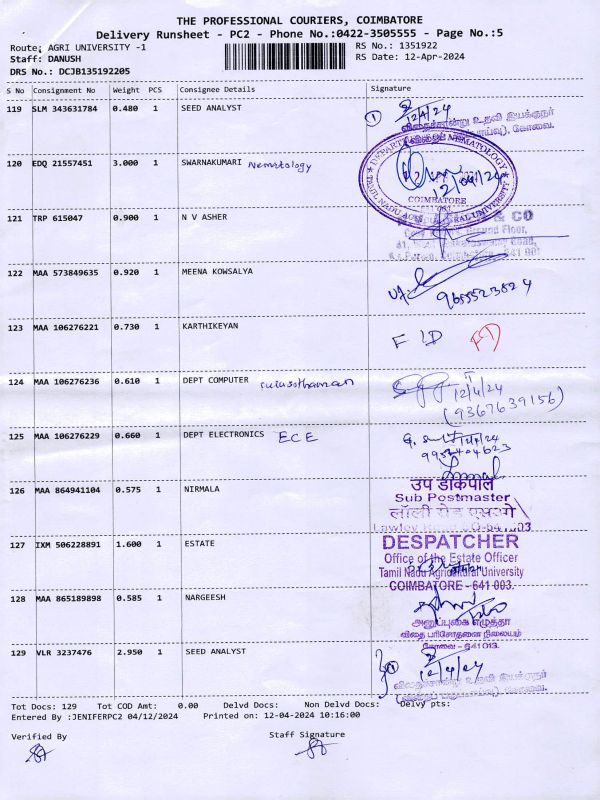 THE PROFESSIONAL COURIERS, COIMBATORE
Delivery Runsheet - PC2 - Phone No.:0422-3505555 - Page No.:5
Route: AGRI UNIVERSITY -1
RS No.: 1351922
Staff: DANUSH
RS Date: 12-Apr-2024
DRS No.: DCJB135192205
S No Consignment No Weight PCS Consignee Details Signature
119 SLM 343631784 0.480 1 SEED ANALYST
12/4/24
விதைச்சான்று உதவி இயக்குநர்
கோவை.
120 EDQ 21557451 3.000 1 SWARNAKUMARI Nematology
NEMATOLOGY
12/04/24
COIMBATORE
TAMIL NADU
UNIVERSITY
121 TRP 615047 0.900 1 N V ASHER
& CO
Ground Floor,
122 MAA 573849635 0.920 1 MEENA KOWSALYA
9655523824
123 MAA 106276221 0.730 1 KARTHIKEYAN
124 MAA 106276236 0.610 1 DEPT COMPUTER
12/4/24
(9367639156)
125 MAA 106276229 0.660 1 DEPT ELECTRONICS ECE
126 MAA 864941104 0.575 1 NIRMALA
उप डाकपाल
Sub Postmaster
127 IXM 506228891 1.600 1 ESTATE
DESPATCHER
Office of the Estate Officer
Tamil Nadu Agricultural University
COIMBATORE - 641 003.
128 MAA 865189898 0.585 1 NARGEESH
விதை பரிசோதனை நிலையம்
கோவை - 641 013.
129 VLR 3237476 2.950 1 SEED ANALYST
12/4/24
உதவி இயக்குநர்
கோவை.
Tot Docs: 129 Tot COD Amt: 0.00 Delvd Docs: Non Delvd Docs: Delvy pts:
Entered By :JENIFERPC2 04/12/2024 Printed on: 12-04-2024 10:16:00
Verified By Staff Signature